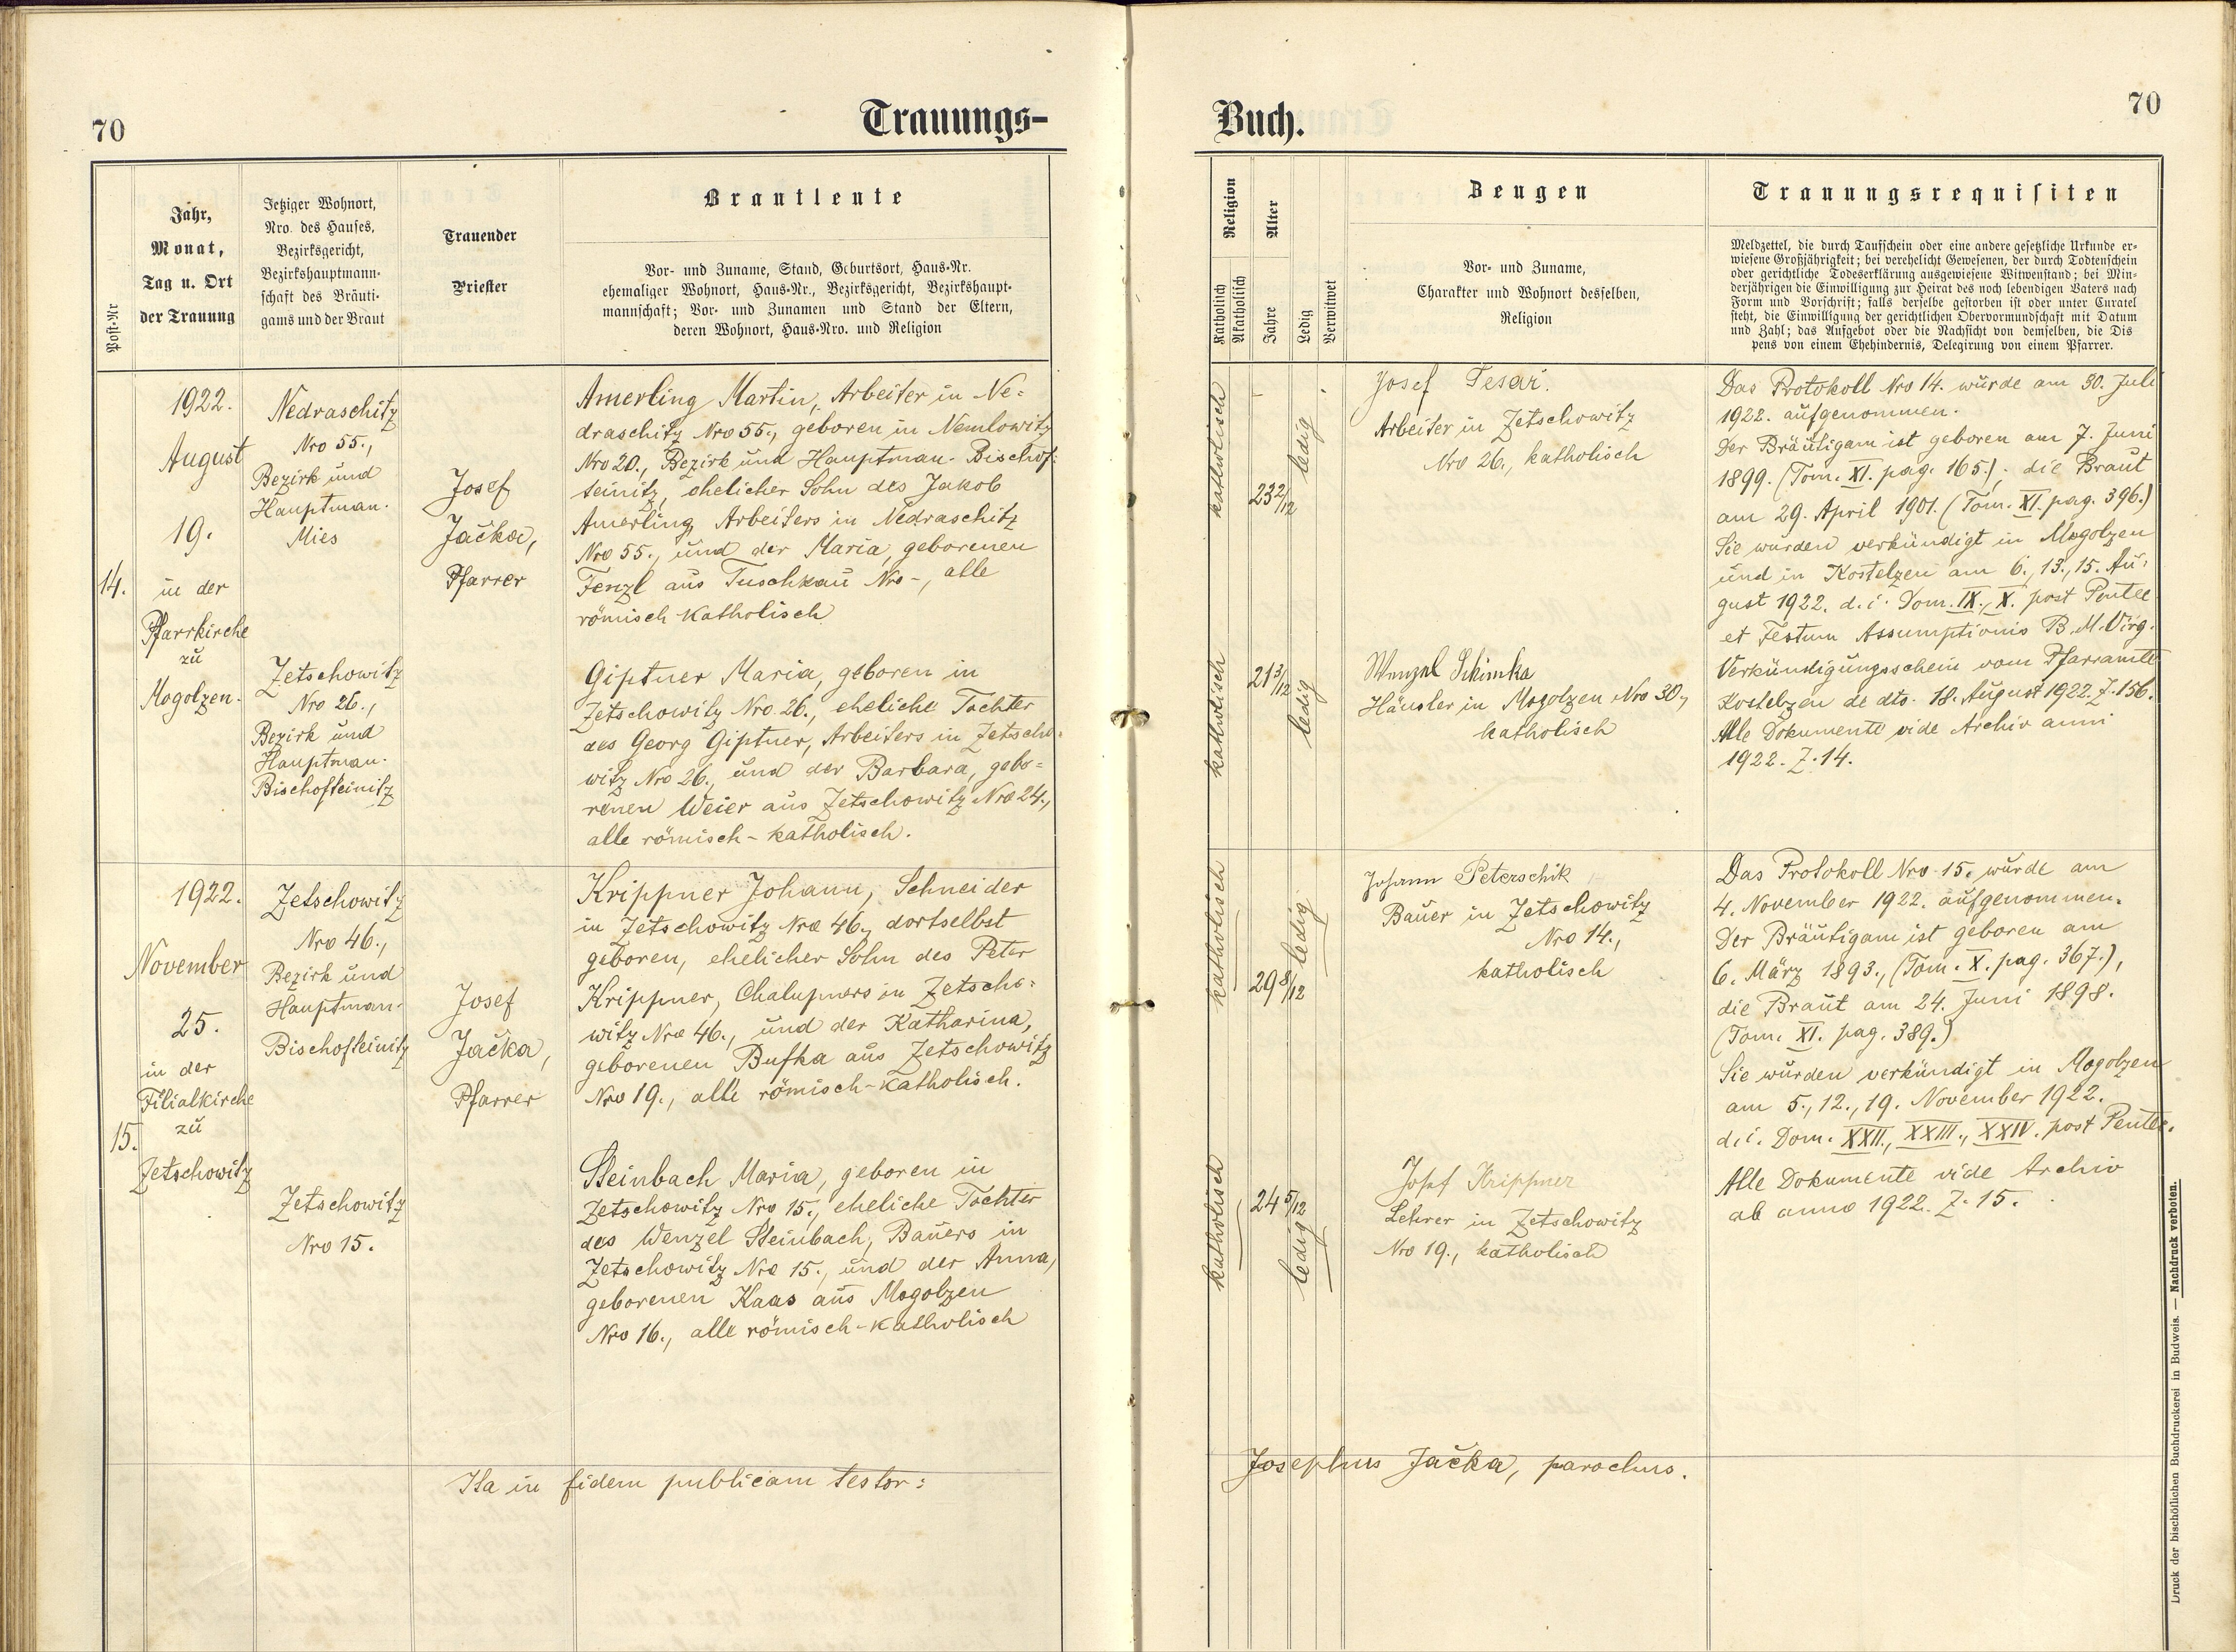 70
Trauungs-
Post-Nr
Jahr,
Monat,
Tag u. Ort
der Trauung
Jetziger Wohnort,
Nro. des Hauses,
Bezirksgericht,
Bezirkshauptmann-
schaft des Bräuti-
gams und der Braut
Trauender
Priester
Brautleute
Vor- und Zuname, Stand, Geburtsort, Haus-Nr.
ehemaliger Wohnort, Haus-Nr., Bezirksgericht, Bezirkshaupt-
mannschaft; Vor- und Zunamen und Stand der Eltern,
deren Wohnort, Haus-Nro. und Religion
14.
1922.
August
19.
in der
Pfarrkirche
zu
Mogolzen.
Nedraschitz
Nro 55.,
Bezirk und
Hauptman.
Mies
Zetschowitz
Nro 26.,
Bezirk und
Hauptman.
Bischofteinitz
Josef
Jačka,
Pfarrer
Amerling Martin, Arbeiter in Ne-
draschitz Nro 55., geboren in Nemlowitz
Nro 20., Bezirk und Hauptman. Bischof-
teinitz, ehelicher Sohn des Jakob
Amerling Arbeiters in Nedraschitz
Nro 55., und der Maria, geborenen
Fenzl aus Tuschkau Nro -, alle
römisch-katholisch
Giptner Maria, geboren in
Zetschowitz Nro 26., eheliche Tochter
des Georg Giptner, Arbeiters in Zetscho-
witz Nro 26., und der Barbara, gebo-
renen Weier aus Zetschowitz Nro 24.,
alle römisch-katholisch.
15.
1922.
November
25.
in der
Filialkirche
zu
Zetschowitz
Zetschowitz
Nro 46.,
Bezirk und
Hauptman.
Bischofteinitz
Zetschowitz
Nro 15.
Josef
Jačka,
Pfarrer
Krippner Johann, Schneider
in Zetschowitz Nro 46., dortselbst
geboren, ehelicher Sohn des Peter
Krippner, Chalupners in Zetscho-
witz Nro 46., und der Katharina,
geborenen Bufka aus Zetschowitz
Nro 19., alle römisch-katholisch.
Steinbach Maria, geboren in
Zetschowitz Nro 15., eheliche Tochter
des Wenzel Steinbach, Bauers in
Zetschowitz Nro 15., und der Anna,
geborenen Kaas aus Mogolzen
Nro 16., alle römisch-katholisch
Ita in fidem publicam testor:
Buch.
70
Religion
Katholisch
Akatholisch
Alter
Jahre
Ledig
Verwitwet
Zeugen
Vor- und Zuname,
Charakter und Wohnort desselben,
Religion
Trauungsrequisiten
Meldzettel, die durch Taufschein oder eine andere gesetzliche Urkunde er-
wiesene Großjährigkeit; bei verehelicht Gewesenen, der durch Todtenschein
oder gerichtliche Todeserklärung ausgewiesene Witwenstand; bei Min-
derjährigen die Einwilligung zur Heirat des noch lebendigen Vaters nach
Form und Vorschrift; falls derselbe gestorben ist oder unter Curatel
steht, die Einwilligung der gerichtlichen Obervormundschaft mit Datum
und Zahl; das Aufgebot oder die Nachsicht von demselben, die Dis
pens von einem Ehehindernis, Delegirung von einem Pfarrer.
katholisch
23 2/12
ledig
Josef Tesař.
Arbeiter in Zetschowitz
Nro 26., katholisch
katholisch
21 3/12
ledig
Wenzel Schimka
Häusler in Mogolzen Nro 30.,
katholisch
Das Protokoll Nro 14. wurde am 30. Juli
1922. aufgenommen.
Der Bräutigam ist geboren am 7. Juni
1899. (Tom. XI. pag. 165.); die Braut
am 29. April 1901. (Tom. XI. pag. 396.)
Sie wurden verkündigt in Mogolzen
und in Kostelzen am 6., 13., 15. Au-
gust 1922. d. i. Dom. IX., X. post Pentec
et Festum Assumptionis B. M. Virg.
Verkündigungsschein vom Pfarramte
Kostelzen de dto. 18. August 1922. Z. 156.
Alle Dokumente vide Archiv anni
1922. Z. 14.
katholisch
29 8/12
ledig
Johann Peterschik
Bauer in Zetschowitz
Nro 14.,
katholisch
katholisch
24 5/12
ledig
Josef Krippner
Lehrer in Zetschowitz
Nro 19., katholisch
Das Protokoll Nro 15. wurde am
4. November 1922. aufgenommen.
Der Bräutigam ist geboren am
6. März 1893., (Tom. X. pag. 367.),
die Braut am 24. Juni 1898.
(Tom. XI. pag. 389.)
Sie wurden verkündigt in Mogolzen
am 5., 12., 19. November 1922.
d. i. Dom. XXII., XXIII., XXIV. post Pentec.
Alle Dokumente vide Archiv
ab anno 1922. Z. 15.
Josephus Jačka, parochus.
Druck der bischöflichen Buchdruckerei in Budweis. — Nachdruck verboten.